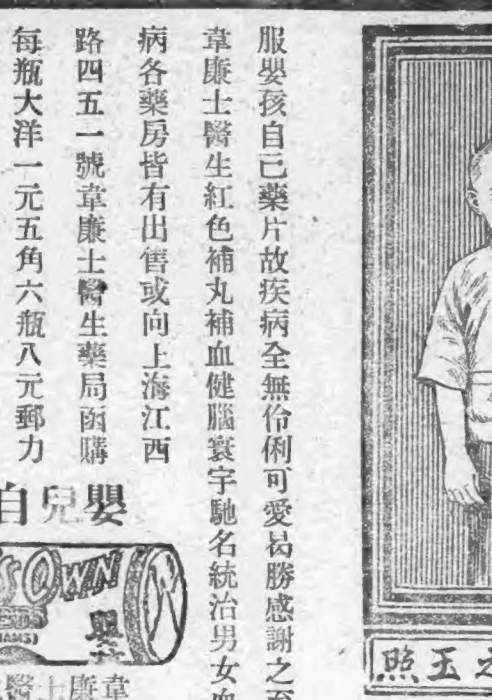 服嬰孩自己藥片故疾病全無伶俐可愛曷勝感謝之至
韋廉士醫生紅色補丸補血健腦寰宇馳名統治男女血
病各藥房皆有出售或向上海江西
路四五一號韋廉士醫生藥局函購
每瓶大洋一元五角六瓶八元郵力
嬰兒自
OWN
嬰
韋廉士醫
之玉照